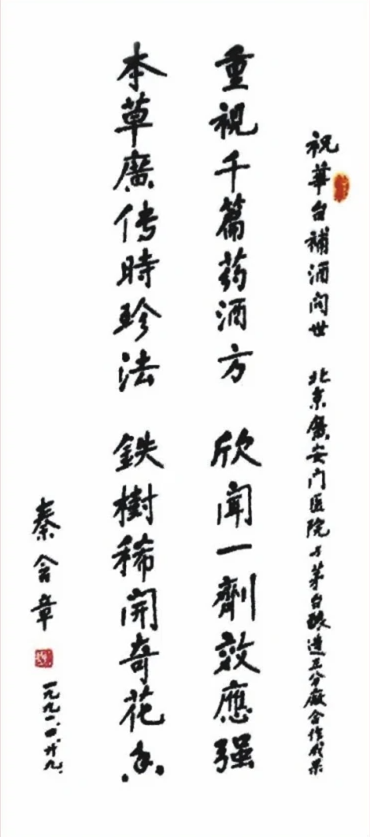 祝華台補酒问世 北京廣安门医院与茅台酿造五分廠合作成果
重視千篇药酒方 欣聞一劑效應强
本草廣传時珍法 鉄樹稀開奇花香
秦含章 一九九一.四.廿九.